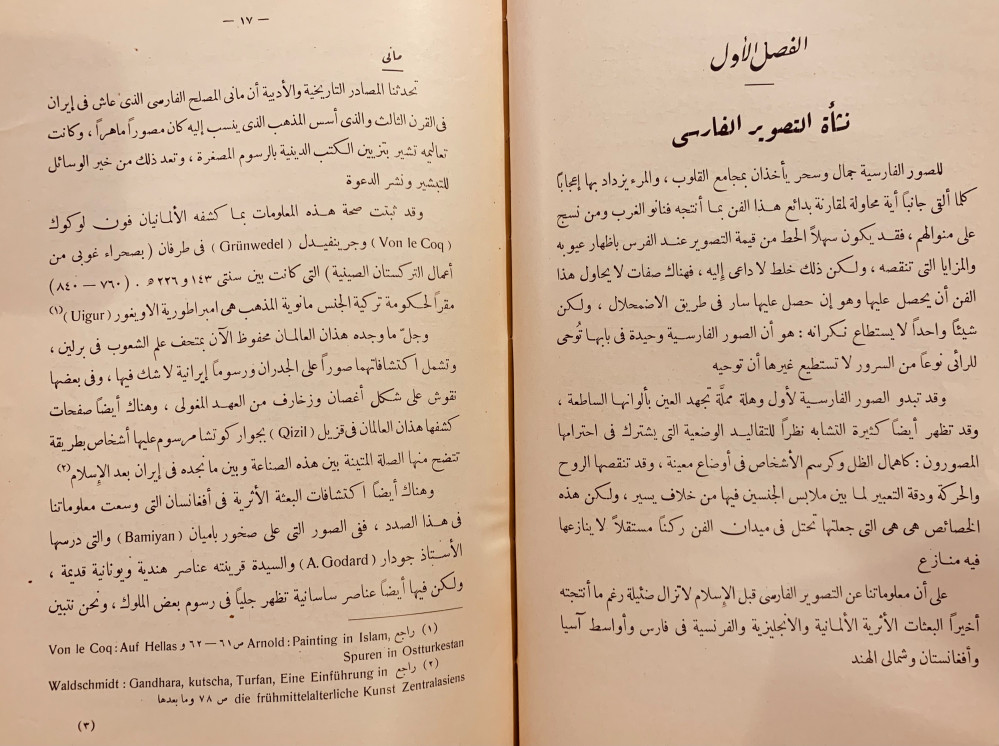 الفصل الأول
نشأة التصوير الفارسى
للصور الفارسية جمال وسحر يأخذان بمجامع القلوب ، والمرء يزداد بها إعجابًا
كلما ألقى جانبًا أية محاولة لمقارنة بدائع هذا الفن بما أنتجه فنانو الغرب ومن نسج
على منوالهم ، فقد يكون سهلاً الحط من قيمة التصوير عند الفرس باظهار عيوبه
والمزايا التى تنقصه ، ولكن ذلك خلط لا داعى إليه ، فهناك صفات لا يحاول هذا
الفن أن يحصل عليها وهو إن حصل عليها سار فى طريق الاضمحلال ، ولكن
شيئًا واحدًا لا يستطاع نكرانه : هو أن الصور الفارسية وحيدة فى بابها تُوحى
للرائى نوعًا من السرور لا تستطيع غيرها أن توحيه
وقد تبدو الصور الفارسية لأول وهلة مملَّة تجهد العين بألوانها الساطعة ،
وقد تظهر أيضًا كثيرة التشابه نظرًا للتقاليد الوضعية التى يشترك فى احترامها
المصورون : كاهمال الظل وكرسم الأشخاص فى أوضاع معينة ، وقد تنقصها الروح
والحركة ودقة التعبير لما بين ملابس الجنسين فيها من خلاف يسير ، ولكن هذه
الخصائص هى هى التى جعلتها تحتل فى ميدان الفن ركنًا مستقلاً لا ينازعها
فيه منازع
على أن معلوماتنا عن التصوير الفارسى قبل الإسلام لا تزال ضئيلة رغم ما أنتجته
أخيرًا البعثات الأثرية الألمانية والانجليزية والفرنسية فى فارس وأواسط آسيا
وأفغانستان وشمالى الهند
— ١٧ —
مانى
تحدثنا المصادر التاريخية والأدبية أن مانى المصلح الفارسى الذى عاش فى إيران
فى القرن الثالث والذى أسس المذهب الذى ينسب إليه كان مصورًا ماهرًا ، وكانت
تعاليمه تشير بتزيين الكتب الدينية بالرسوم المصغرة ، وتعد ذلك من خير الوسائل
للتبشير ونشر الدعوة
وقد ثبتت صحة هذه المعلومات بما كشفه الألمانيان فون لوكوك
( Von le Coq ) وجرينفيدل ( Grünwedel ) فى طرفان ( بصحراء غوبى من
أعمال التركستان الصينية ) التى كانت بين سنتى ١٤٣ و ٢٢٦ ﻫ . ( ٧٦٠ — ٨٤٠ )
مقرًا لحكومة تركية الجنس مانوية المذهب هى امبراطورية الاويغور ( Uigur )(١)
وجلّ ما وجده هذان العالمان محفوظ الآن بمتحف علم الشعوب فى برلين ،
وتشمل اكتشافاتهما صورًا على الجدران ورسومًا إيرانية لا شك فيها ، وفى بعضها
نقوش على شكل أغصان وزخارف من العهد المغولى ، وهناك أيضًا صفحات
كشفها هذان العالمان فى قزيل ( Qizil ) بجوار كوتشا مرسوم عليها أشخاص بطريقة
تتضح منها الصلة المتينة بين هذه الصناعة وبين ما نجده فى إيران بعد الإسلام(٢)
وهناك أيضًا اكتشافات البعثة الأثرية فى أفغانسان التى وسعت معلوماتنا
فى هذا الصدد ، ففى الصور التى على صخور باميان ( Bamiyan ) والتى درسها
الأستاذ جودار ( A. Godard ) والسيدة قرينته عناصر هندية ويونانية قديمة ،
ولكن فيها أيضًا عناصر ساسانية تظهر جليًا فى رسوم بعض الملوك ، ونحن نتبين
(١) راجع Arnold : Painting in Islam, ص ٦١ — ٦٢ و Von le Coq : Auf Hellas
Spuren in Ostturkestan
(٢) راجع Waldschmidt : Gandhara, kutscha, Turfan, Eine Einführung in
die frühmittelalterliche Kunst Zentralasiens ص ٧٨ وما بعدها
(٣)